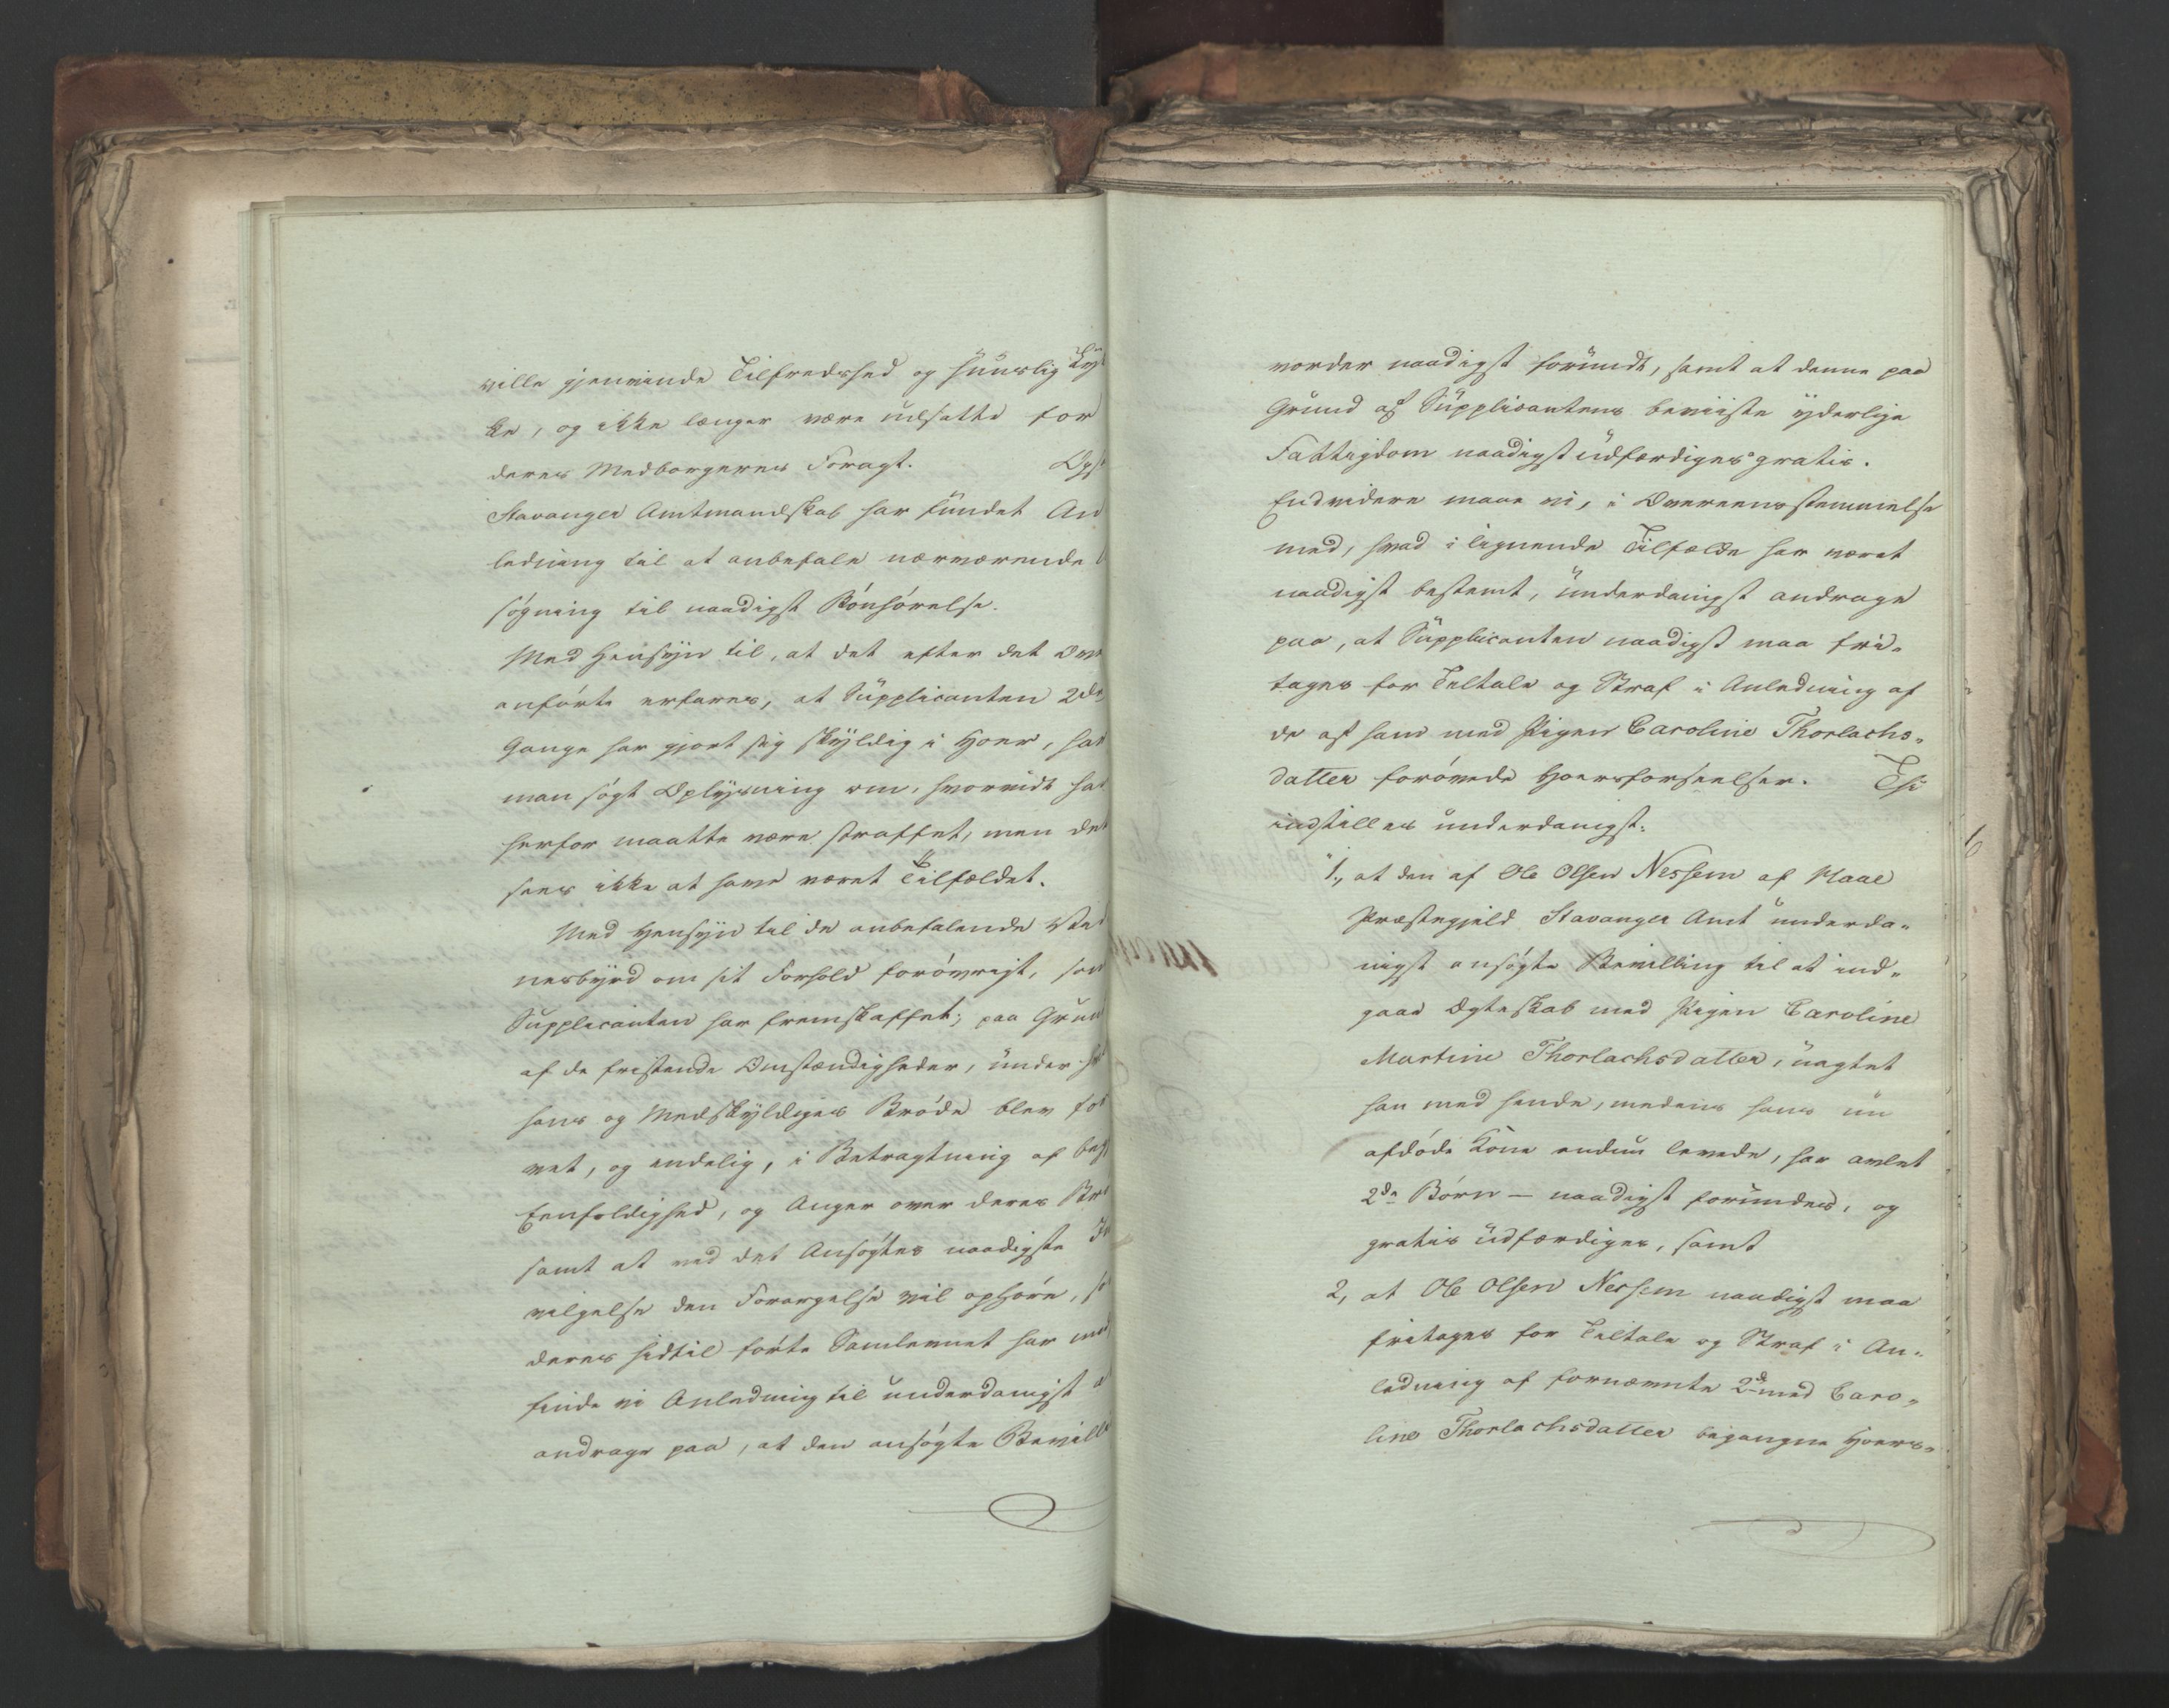 ville gjenvinde Tilfredshed og huuslig Lyk
ke, og ikke længer være udsatte for
deres Medborgeres Foragt.
Stavanger Amtmandskab har fundet An
ledning til at anbefale nærværende
søgning til naadigst Bønhørelse.
Med Hensyn til, at det efter det Ovn
anførte erfares, at Supplicanten 2de
Gange har gjort sig skyldig i Hoer, har
man søgt Oplysning om, hvorvidt han
herfor maatte være straffet, men det
sees ikke at have været Tilfældet.
Med Hensyn til de anbefalende Vid
nesbyrd om sit Forhold forøvrigt, som
Supplicanten har fremskaffet; paa Grund
af de fristende Omstændigheder, under
hans og Medskyldiges Brøde blev før
vet, og endelig, i Betragtning af begges
Eenfoldighed, og Anger over deres Brø
samt at ved det Ansøgtes naadigste Be
vilgelse den Forargelse vil ophøre, so
deres hidtil førte Samlevnet har med
finde vi Anledning til underdanigst a
andrage paa, at den ansøgte Bevilli
vorder naadigst forundt, samt at denne paa
Grund af Supplicantens beviiste yderlige
Fattigdom naadigst udfærdiges gratis.
Endvidere maae vi, i Overeensstemmelse
med, hvad i lignende Tilfælde har været
naadigst bestemt, underdanigst andrage
paa, at Supplicanten naadigst maa fri-
tages for Tiltale og Straf i Anledning af
de af ham med Pigen Caroline Thorlachs-
datter forøvede Hoersforseelser. Thi
indstilles underdanigst:
"1, at den af Ole Olsen Nessem af Haae
Præstegjeld Stavanger Amt underda-
nigst ansøgte Bevilling til at ind-
gaae Ægteskab med Pigen Caroline
Martine Thorlachsdatter, uagtet
han med hende, medens hans nu
afdøde Kone endnu levede, har avlet
2de Børn – naadigst forundes, og
gratis udfærdiges, samt
2, at Ole Olsen Nessem naadigst maa
fritages for Tiltale og Straf i An-
ledning af fornævnte 2de med Caro-
line Thorlachsdatter begangne Hoers-